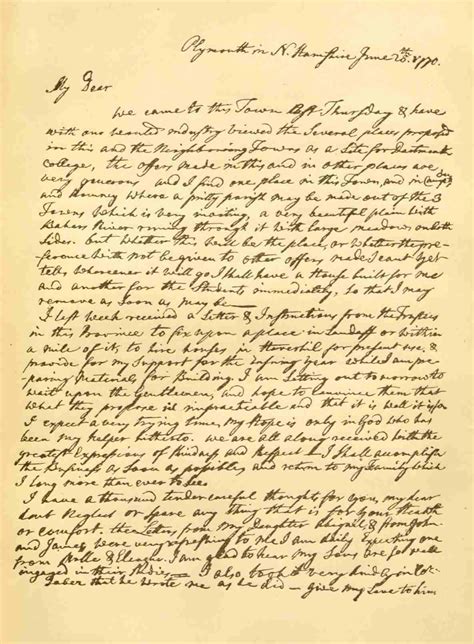 Plymouth in N. Hamshire June 25th. 1770.
My Dear
We came to this Town last Thursday & have
with our wonted industry viewed the several places proposed
in this and the Neighboring Towns as a Site for Dartmouth
College, the offers made in this and in other places are
very generous and I find one place in this Town, and in Camp
and Romney where a pritty parish may be made out of the 3
Towns which is very inviting, a very beautifull plain with
Bakers River running through it with large meadows on both
Sides. but whether this will be the place, or whether the pre-
ference will not be given to other offers made I cant yet
tell, wheresoever it will go I shall have a House built for me
and another for the Students immediately, so that I may
remove as soon as may be —
I last week received a Letter & Instructions from the Trustees
in this Province to fix upon a place in Landaff or within
a mile of it; to hire houses in Haverhil for present use, &
provide for my Support for the Ensuing year while I am pre-
paring Materials for Building. I am Setting out tomorrow to
wait upon the Gentlemen, and hope to convince them that
what they propose is impracticable and that it is well it is so
I expect a very trying time, my Hope is only in God who has
been my helper hitherto. we are all along received with the
greatest Expressions of Kindness and Respect — I shall accomplish
the Business as soon as possible and return to my Family which
I long more than ever to see.
I have a thousand tender careful thought for you, my dear
dont Neglect or Spare any thing that is for your Health
or comfort. the Letters from my Daughter Abigail, & from John
and James were very refreshing to me I am daily Expecting one
from Polle & Eleazer. I am glad to hear my Sons are so well
engaged in their Studies — I also took it very kindly in
that he wrote me as he did — give my Love to him